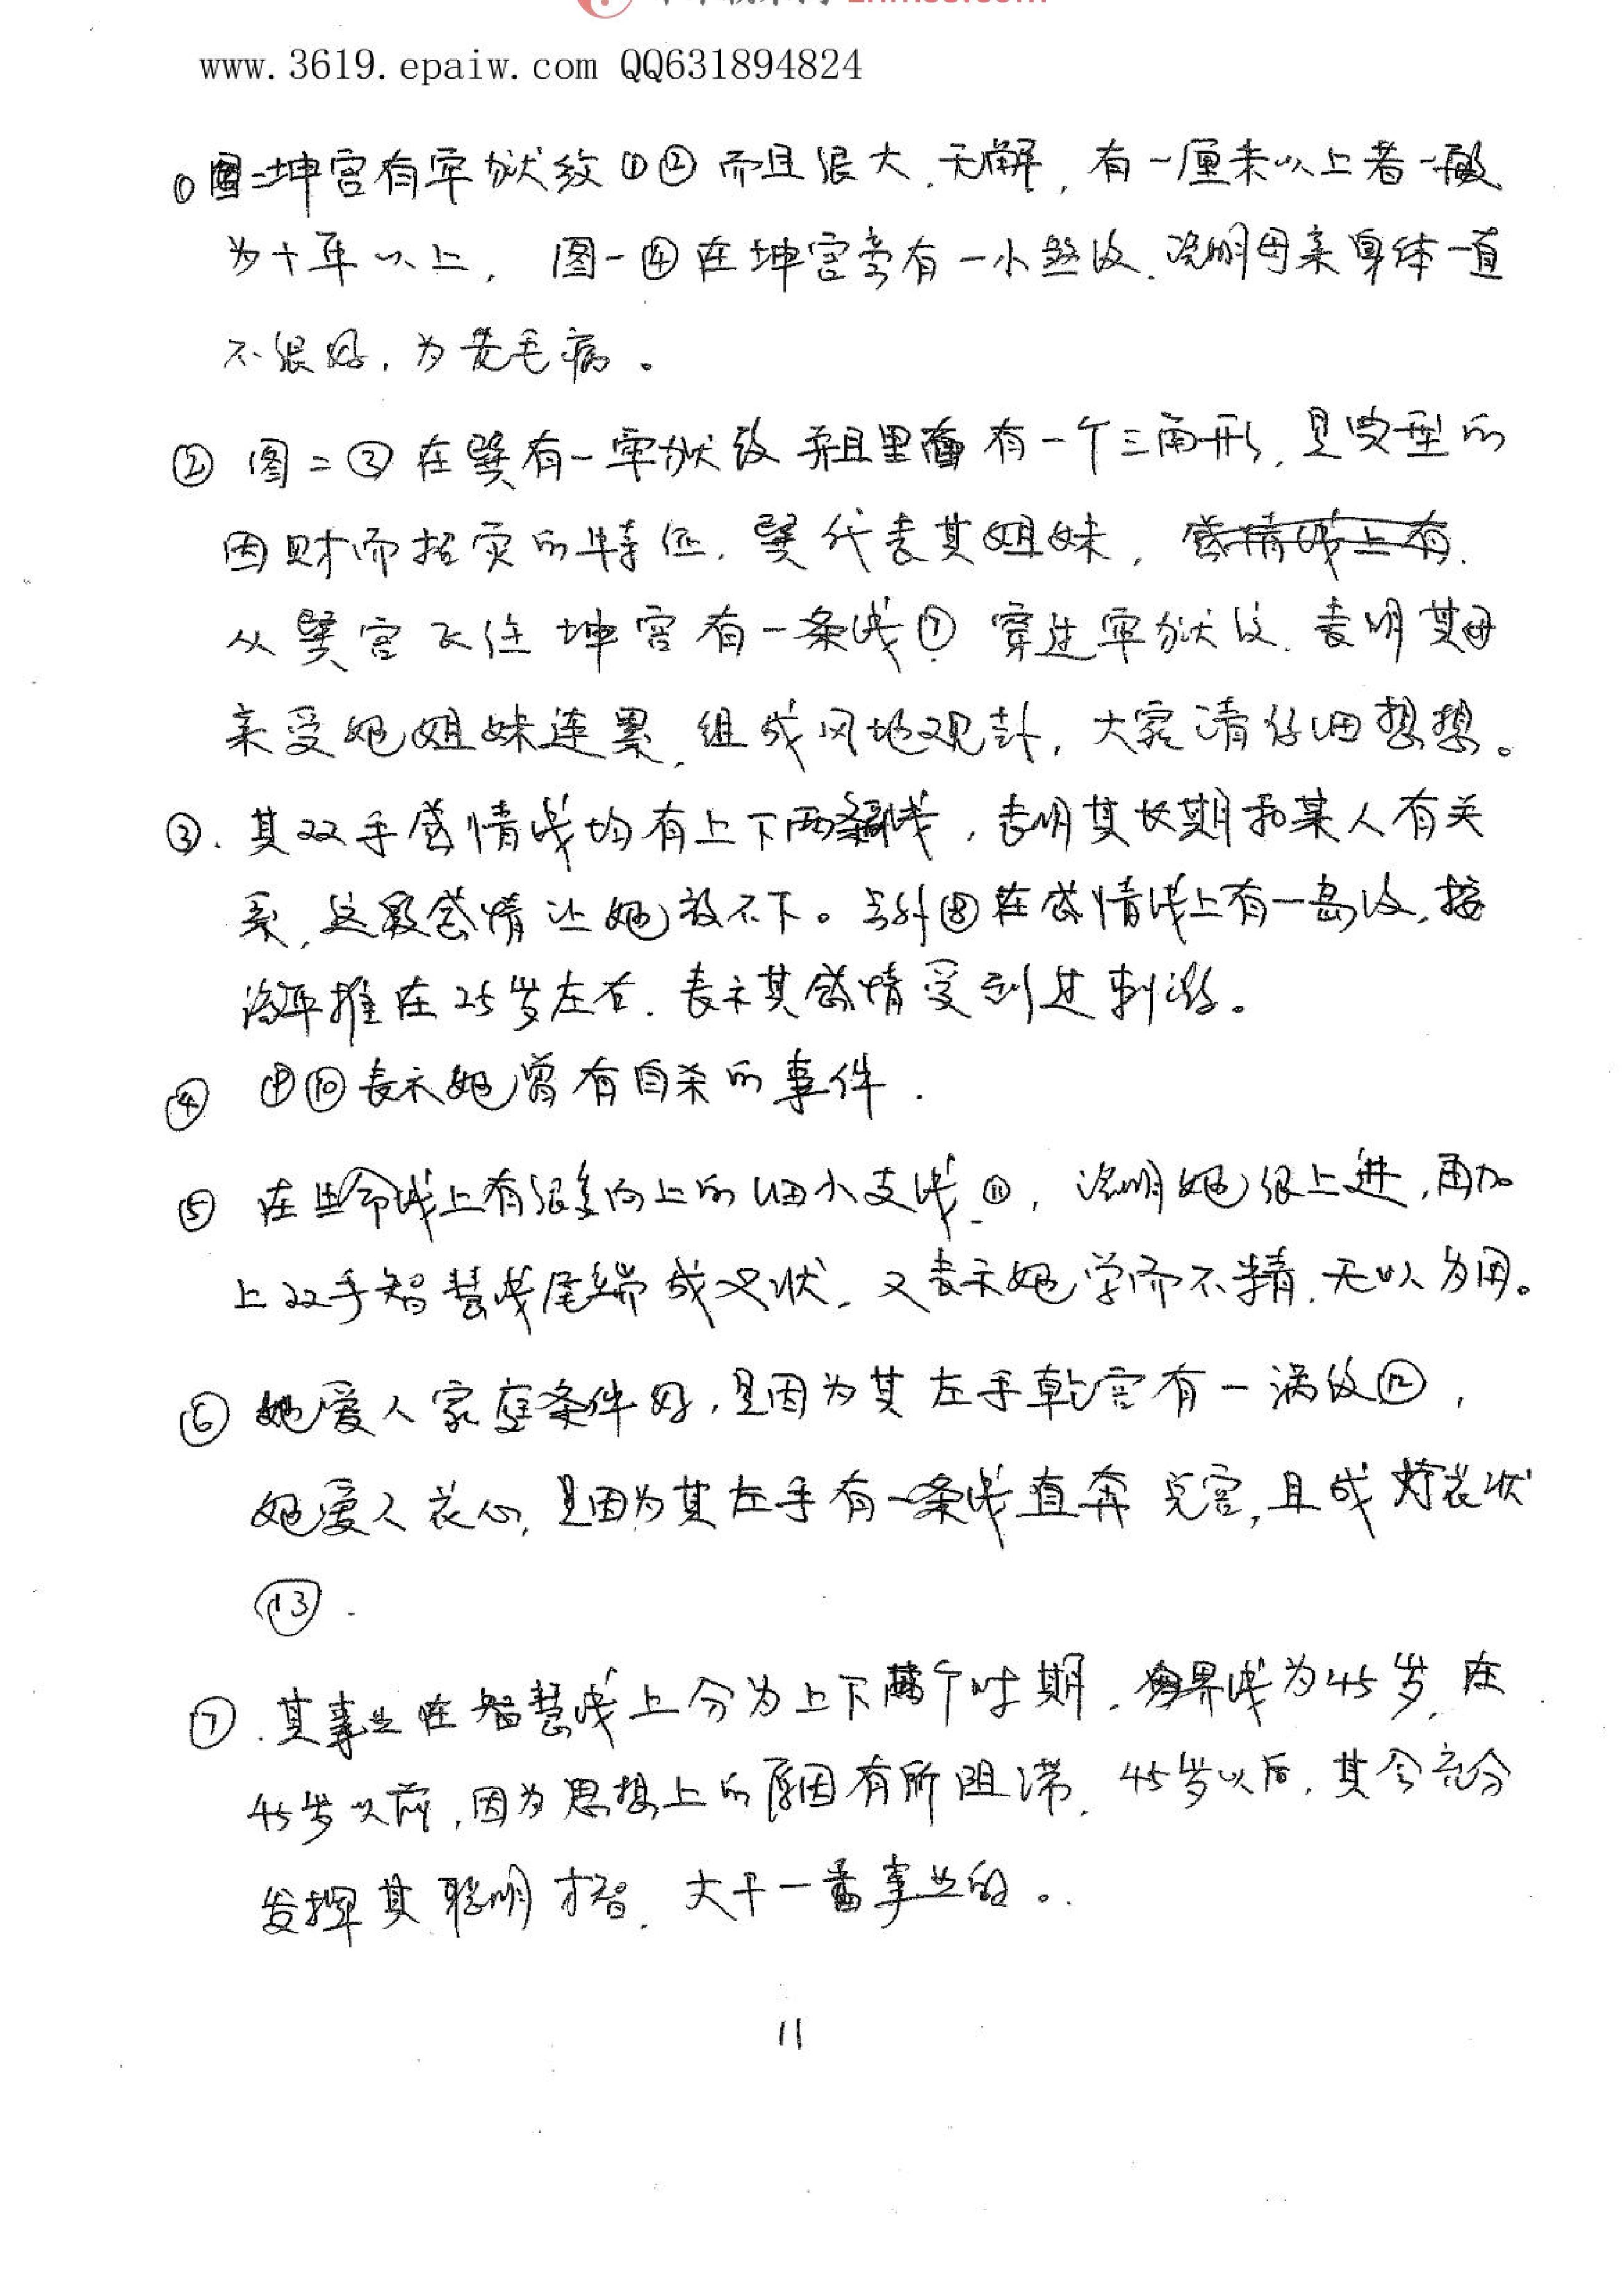 www.3619.epaiw.com QQ631894824
① 图二坤宫有牢狱纹①② 而且很大,无解,有一厘米以上者一般
为十年以上, 图一④在坤宫旁有一小煞纹.说明母亲身体一直
不很好,为老毛病。
② 图二③在巽有一牢狱纹 并且里面有一个三角形,是典型的
因财而招灾的特征.巽代表其姐妹,感情线上有.
从巽宫飞往坤宫有一条线⑦ 穿进牢狱纹.表明其母
亲受她姐妹连累,组成风地观卦,大家请仔细想想。
③.其双手感情线均有上下两条线,表明其长期和某人有关
系,这段感情让她放不下。另外⑧在感情线上有一岛纹,按
流年推在25岁左右.表示其感情受到过刺激。
④ ⑨⑩表示她曾有自杀的事件.
⑤ 在生命线上有很多向上的细小支线⑪,说明她很上进,再加
上双手智慧线尾端成叉状,又表示她学而不精.无以为用。
⑥ 她爱人家庭条件好,是因为其左手乾宫有一涡纹⑫,
她爱人花心,是因为其左手有一条线直奔兑宫,且成灯花状
⑬.
⑦.其事业在智慧线上分为上下两个时期.分界线为45岁.在
45岁以前,因为思想上的原因有所阻滞.45岁以后,其会充分
发挥其聪明才智.大干一番事业的。
11